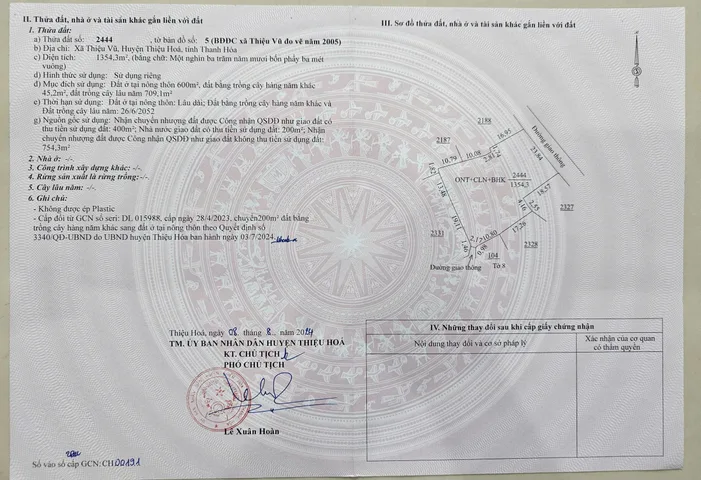 II. Thửa đất, nhà ở và tài sản khác gắn liền với đất
1. Thửa đất:
a) Thửa đất số: 2444 , tờ bản đồ số: 5 (BĐĐC xã Thiệu Vũ đo vẽ năm 2005)
b) Địa chỉ: Xã Thiệu Vũ, Huyện Thiệu Hoá, tỉnh Thanh Hóa
c) Diện tích: 1354,3m², (bằng chữ: Một nghìn ba trăm năm mươi bốn phẩy ba mét
vuông)
d) Hình thức sử dụng: Sử dụng riêng
đ) Mục đích sử dụng: Đất ở tại nông thôn 600m², đất bằng trồng cây hàng năm khác
45,2m², đất trồng cây lâu năm 709,1m²
e) Thời hạn sử dụng: Đất ở tại nông thôn: Lâu dài; Đất bằng trồng cây hàng năm khác và
Đất trồng cây lâu năm: 26/6/2052
g) Nguồn gốc sử dụng: Nhận chuyển nhượng đất được Công nhận QSDĐ như giao đất có
thu tiền sử dụng đất: 400m²; Nhà nước giao đất có thu tiền sử dụng đất: 200m²; Nhận
chuyển nhượng đất được Công nhận QSDĐ như giao đất không thu tiền sử dụng đất:
754,3m²
2. Nhà ở: -/-.
3. Công trình xây dựng khác: -/-.
4. Rừng sản xuất là rừng trồng: -/-.
5. Cây lâu năm: -/-.
6. Ghi chú:
- Không được ép Plastic
- Cấp đổi từ GCN số seri: DL 015988, cấp ngày 28/4/2023, chuyển 200m² đất bằng
trồng cây hàng năm khác sang đất ở tại nông thôn theo Quyết định số
3340/QĐ-UBND do UBND huyện Thiệu Hóa ban hành ngày 03/7/2024
Thiệu Hoá, ngày 08 tháng 8 năm 2024
TM. ỦY BAN NHÂN DÂN HUYỆN THIỆU HOÁ
KT. CHỦ TỊCH
PHÓ CHỦ TỊCH
Lê Xuân Hoàn
Số vào sổ cấp GCN: CH00191
III. Sơ đồ thửa đất, nhà ở và tài sản khác gắn liền với đất
2188
2187
Đường giao thông
16.95
23.84
10.79
10.08
2.83
1.82
13.48
ONT+CLN+BHK
2444
1354,3
18.57
2327
19.11
4.16
2.55
2331
17.26
2328
10.80
1.40
0.98
104
Tờ 8
Đường giao thông
IV. Những thay đổi sau khi cấp giấy chứng nhận
Nội dung thay đổi và cơ sở pháp lý
Xác nhận của cơ quan
có thẩm quyền